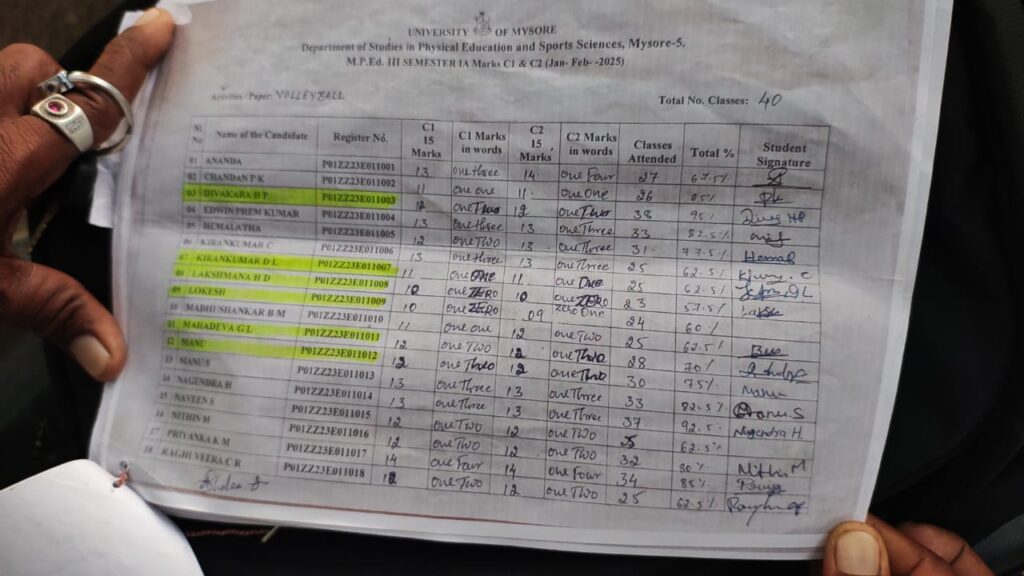 UNIVERSITY OF MYSORE
Department of Studies in Physical Education and Sports Sciences, Mysore-5.
M.P.Ed. III SEMESTER IA Marks C1 & C2 (Jan- Feb- -2025)
Activities / Paper: VOLLEYBALL Total No. Classes: 40
Sl. No Name of the Candidate Register No. C1 15 Marks C1 Marks in words C2 15 Marks C2 Marks in words Classes Attended Total % Student Signature
01 ANANDA P01ZZ23E011001 13 one three 14 one Four 27 67.5%
02 CHANDAN P K P01ZZ23E011002 11 one one 11 one One 26 65%
03 DIVAKARA H P P01ZZ23E011003 12 one Two 12 one Two 38 95%
04 EDWIN PREM KUMAR P01ZZ23E011004 13 one three 13 one Three 33 82.5%
05 HEMALATHA P01ZZ23E011005 12 one TWO 13 one Three 31 77.5% Hemal
06 KIRANKUMAR C P01ZZ23E011006 13 one three 13 one Three 25 62.5%
07 KIRANKUMAR D L P01ZZ23E011007 11 one One 11 one One 25 62.5%
08 LAKSHMANA H D P01ZZ23E011008 10 one ZERO 10 one ZERO 23 57.5%
09 LOKESH P01ZZ23E011009 10 one ZERO 09 zero One 24 60%
10 MADHUSHANKAR B M P01ZZ23E011010 11 one one 12 one Two 25 62.5%
11 MAHADEVA G L P01ZZ23E011011 12 one TWO 12 one Two 28 70%
12 MANU P01ZZ23E011012 12 one Two 12 one Two 30 75% Manu
13 MANU S P01ZZ23E011013 13 one Three 13 one Three 33 82.5% Manu S
14 NAGENDRA H P01ZZ23E011014 one Three 13 one Three 37 92.5% Nagendra H.
15 NAVEEN S P01ZZ23E011015 12 one TWO 12 one TWO 62.5%
16 NITHIN M P01ZZ23E011016 12 one TWO 12 one TWO 32 80% Nithin M
17 PRIYANKA K M P01ZZ23E011017 14 one Four 14 one Four 34 85%
18 RAGHUVEERA C R P01ZZ23E011018 12 one TWO 12 one Two 25 62.5%